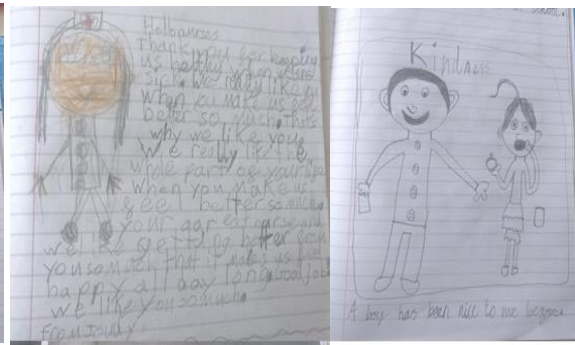 Hello nurses
Thank you for keeping
us healthy when us
sick. We really like you
when you make us feel
better so much. Thats
why we like you.
We really like the
whole part of your
when you make us
feel better so much
your a great nurse and
we like getting better from
you so much that it makes us feel
happy all day long. Good job
we like you so much.
From
Kindness
A boy has been nice to me